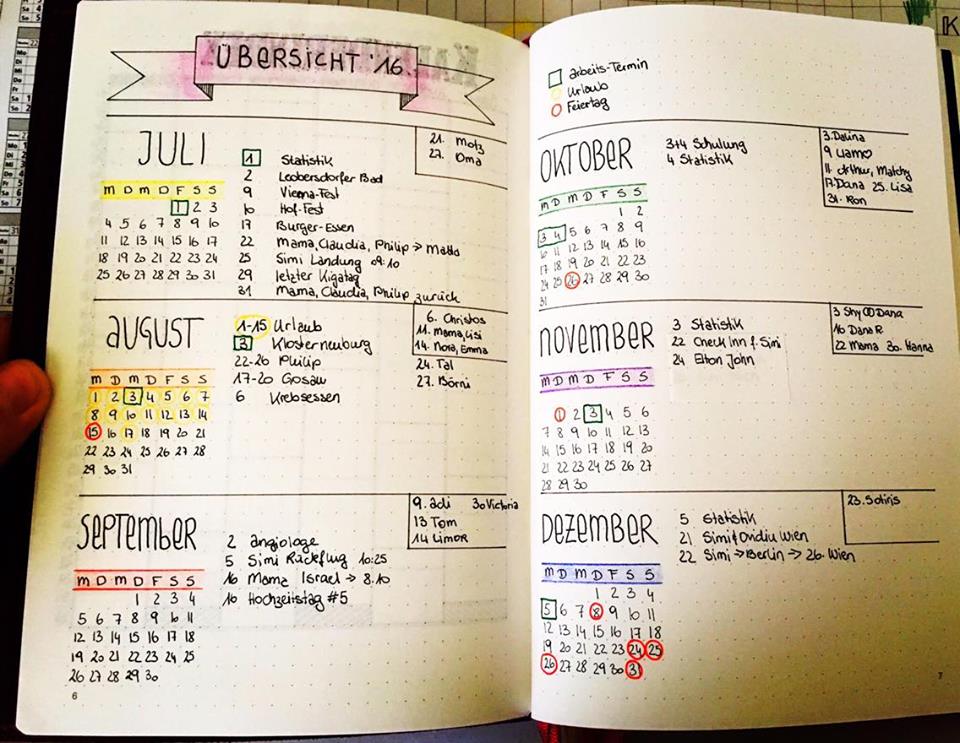 ÜBERSICHT '16
JULI
M D M D F S S
1 2 3
4 5 6 7 8 9 10
11 12 13 14 15 16 17
18 19 20 21 22 23 24
25 26 27 28 29 30 31
1 Statistik
2 Leobersdorfer Bad
9 Vienna-Fest
10 Hof-Fest
17 Burger-Essen
22 Mama, Claudia, Philip → Malta
25 Simi Landung 09:10
29 letzter Kigatag
31 Mama, Claudia, Philip zurück
21. Motz
27. Oma
AUGUST
M D M D F S S
1 2 3 4 5 6 7
8 9 10 11 12 13 14
15 16 17 18 19 20 21
22 23 24 25 26 27 28
29 30 31
1-15 Urlaub
3 Klosterneuburg
22-26 Philip
17-20 Gosau
6 Krebsessen
6. Christos
11. Mama, Lisi
14. Nora, Emma
24. Tal
27. Börni
SEPTEMBER
M D M D F S S
1 2 3 4
5 6 7 8 9 10 11
12 13 14 15 16 17 18
19 20 21 22 23 24 25
26 27 28 29 30
2 angiologe
5 Simi Rückflug 10:25
16 Mama Israel → 8.10
10 Hochzeitstag #5
9. adi 30 Victoria
13 Tom
14 Limor
6
arbeits-Termin
Urlaub
Feiertag
OKTOBER
M D M D F S S
1 2
3 4 5 6 7 8 9
10 11 12 13 14 15 16
17 18 19 20 21 22 23
24 25 26 27 28 29 30
31
3+4 Schulung
4 Statistik
3. Dalina
9. Liam
11. Arthur, Matchy
17. Dana 25. Lisa
31. Ron
NOVEMBER
M D M D F S S
1 2 3 4 5 6
7 8 9 10 11 12 13
14 15 16 17 18 19 20
21 22 23 24 25 26 27
28 29 30
3 Statistik
22 Check Inn f. Simi
24 Elton John
3 Shy Dana
16 Dana R.
22 Mama 30. Hanna
DEZEMBER
M D M D F S S
1 2 3 4
5 6 7 8 9 10 11
12 13 14 15 16 17 18
19 20 21 22 23 24 25
26 27 28 29 30 31
5 Statistik
21 Simi & Ovidiu Wien
22 Simi → Berlin → 26. Wien
23. Sotiris
7